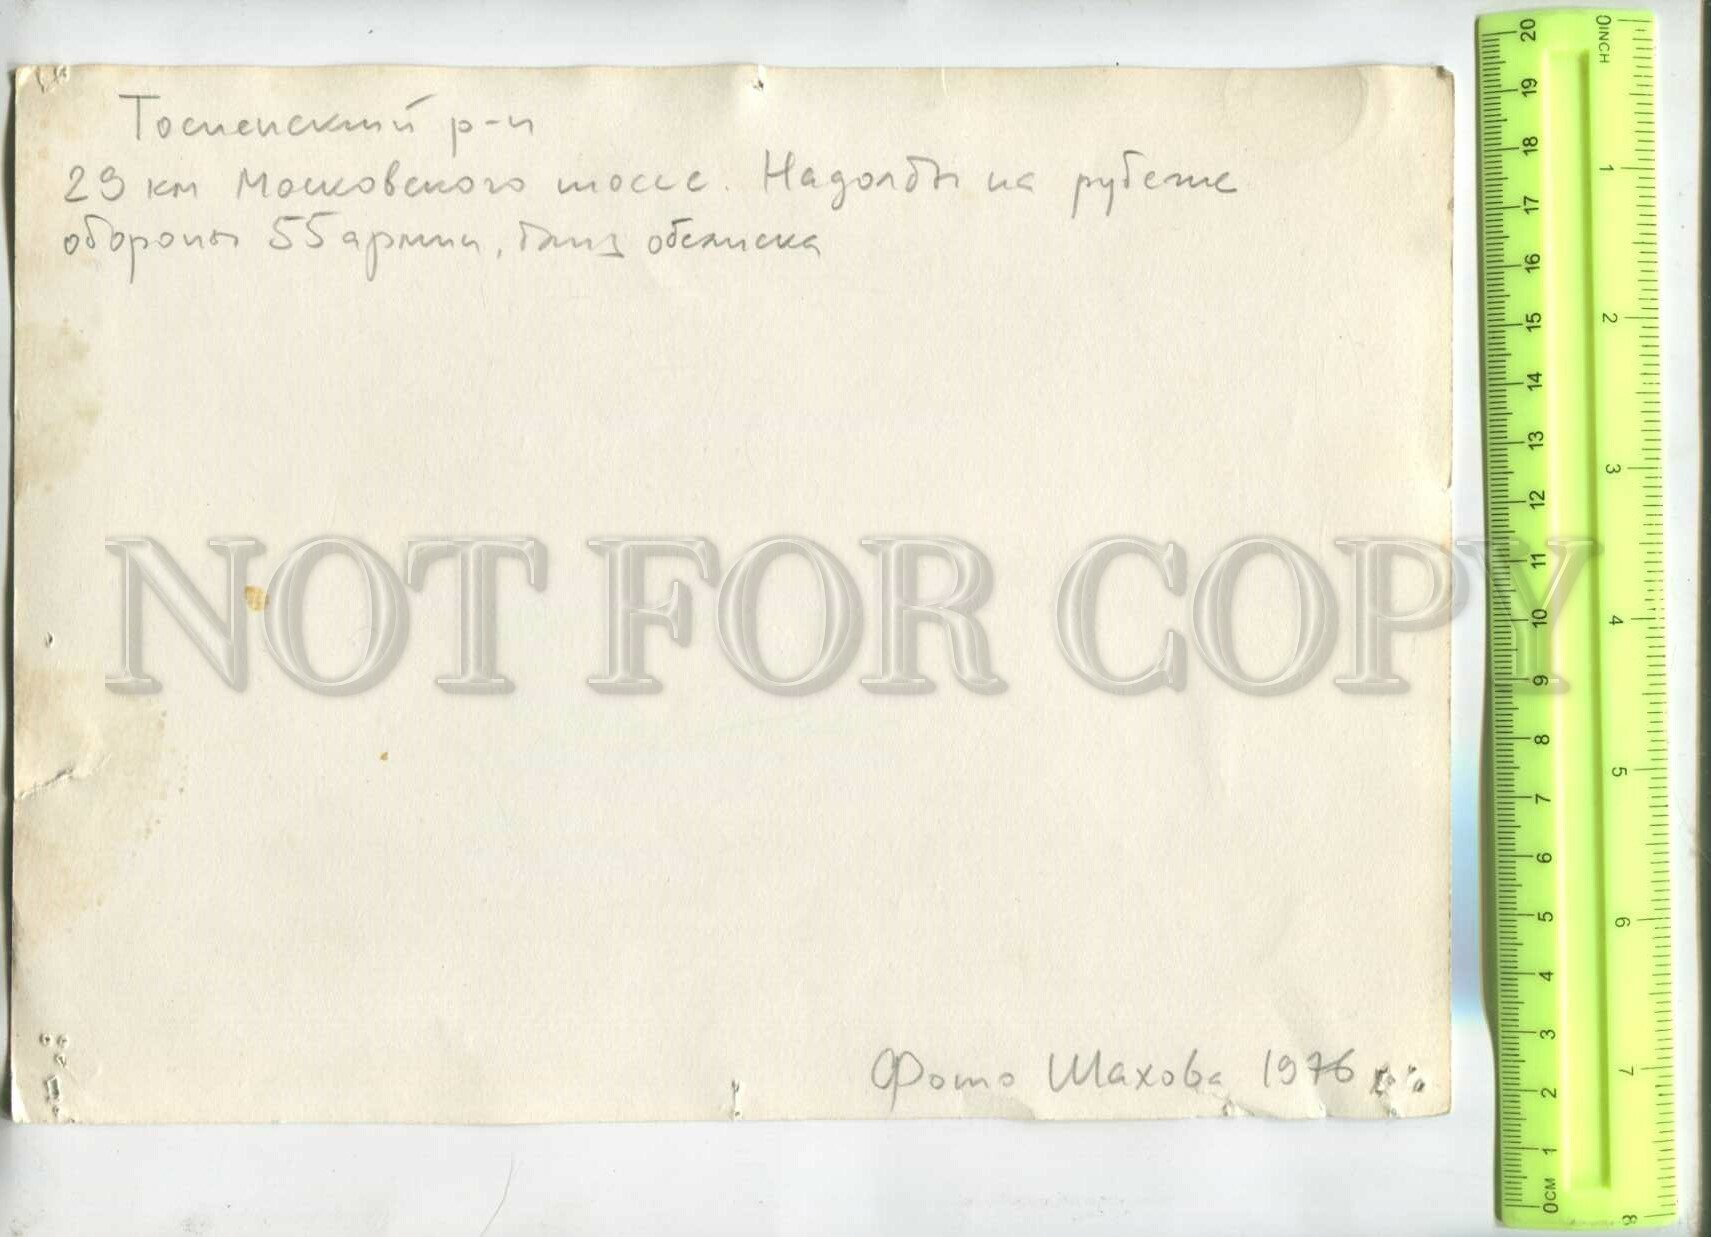 Тосненский р-н
29 км Московского шоссе. Надолбы на рубеже
обороны 55 армии, близ обелиска
NOT FOR COPY
Фото Шахова 1976
0INCH 1 2 3 4 5 6 7 8
20 19 18 17 16 15 14 13 12 11 10 9 8 7 6 5 4 3 2 1 0CM